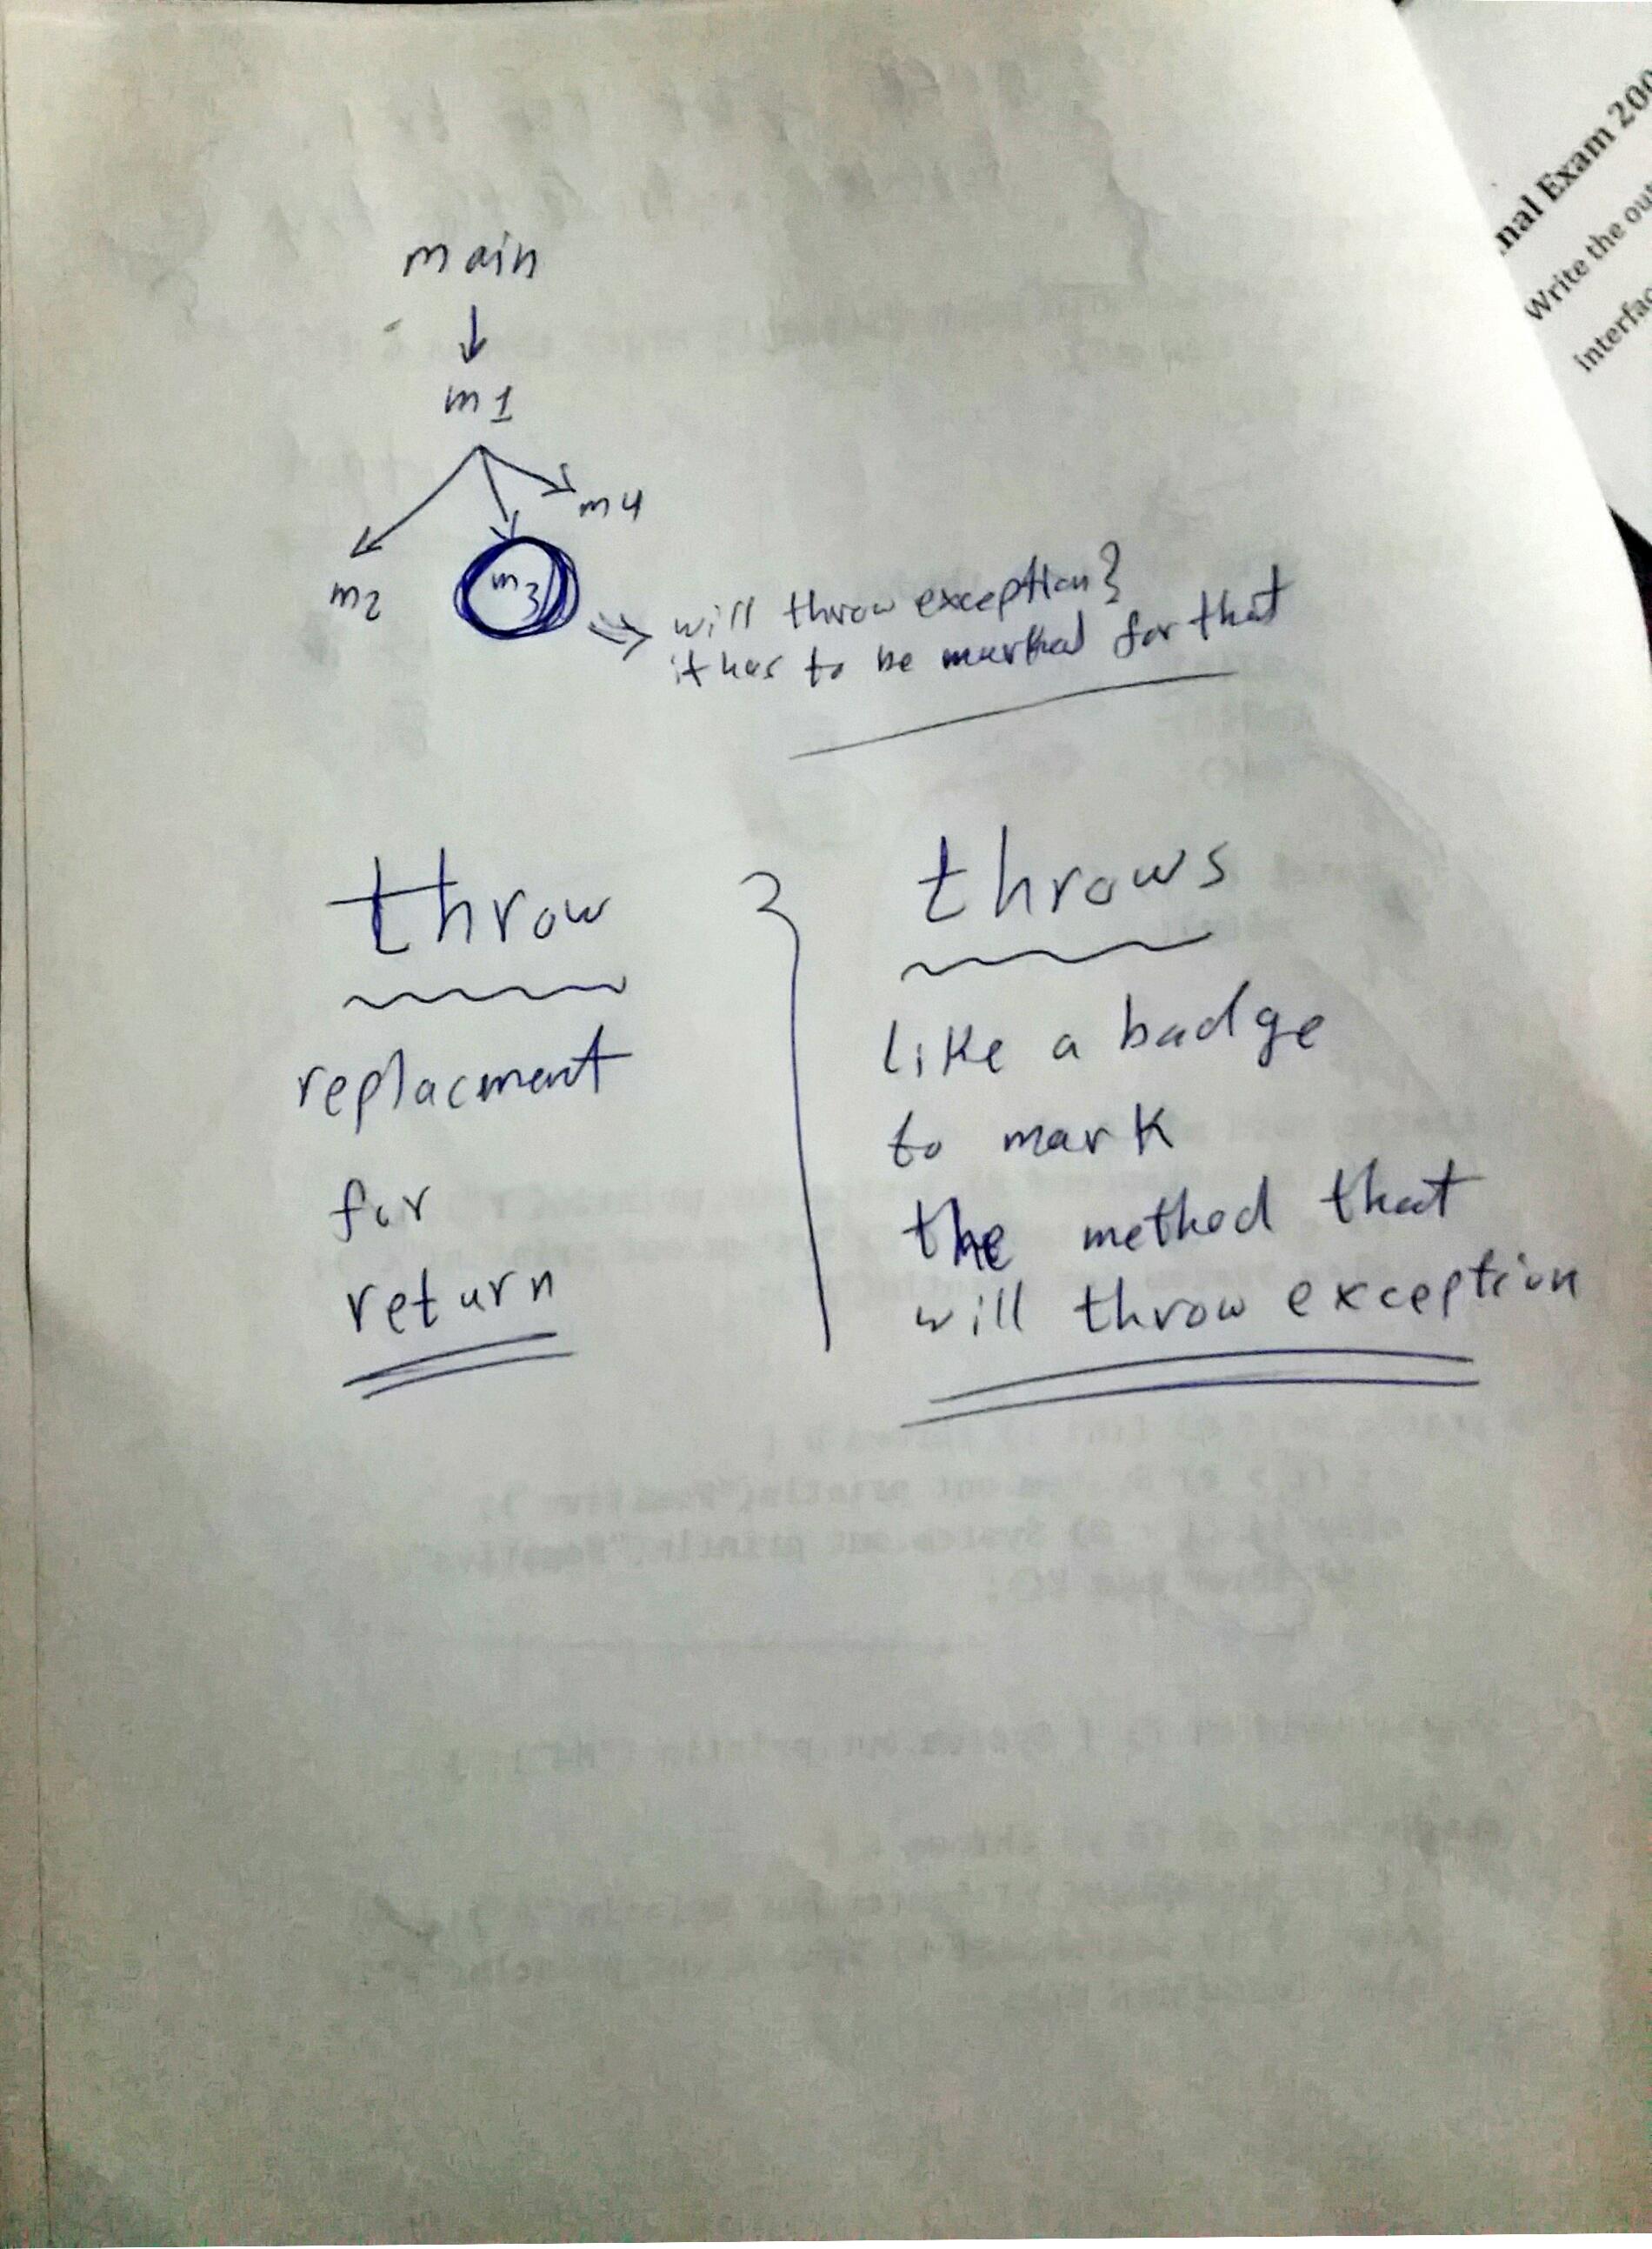 main
m1
m4
m2
m3
will throw exception?
it has to be marked for that
throw
replacment
for
return
throws
like a badge
to mark
the method that
will throw exception
nal Exam 200
Write the out
interfac